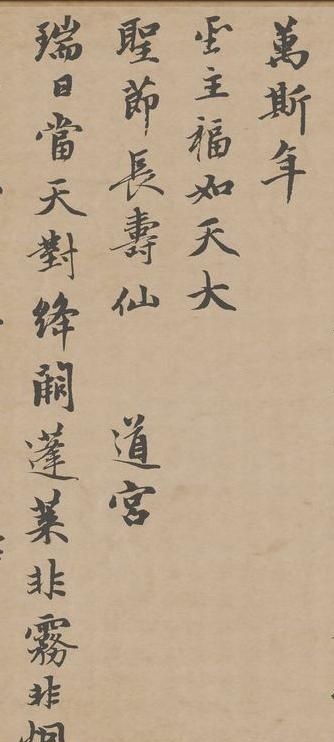 萬斯年
聖主福如天大
聖節長壽仙 道宮
瑞日當天對絳闕蓬萊非霧非烟